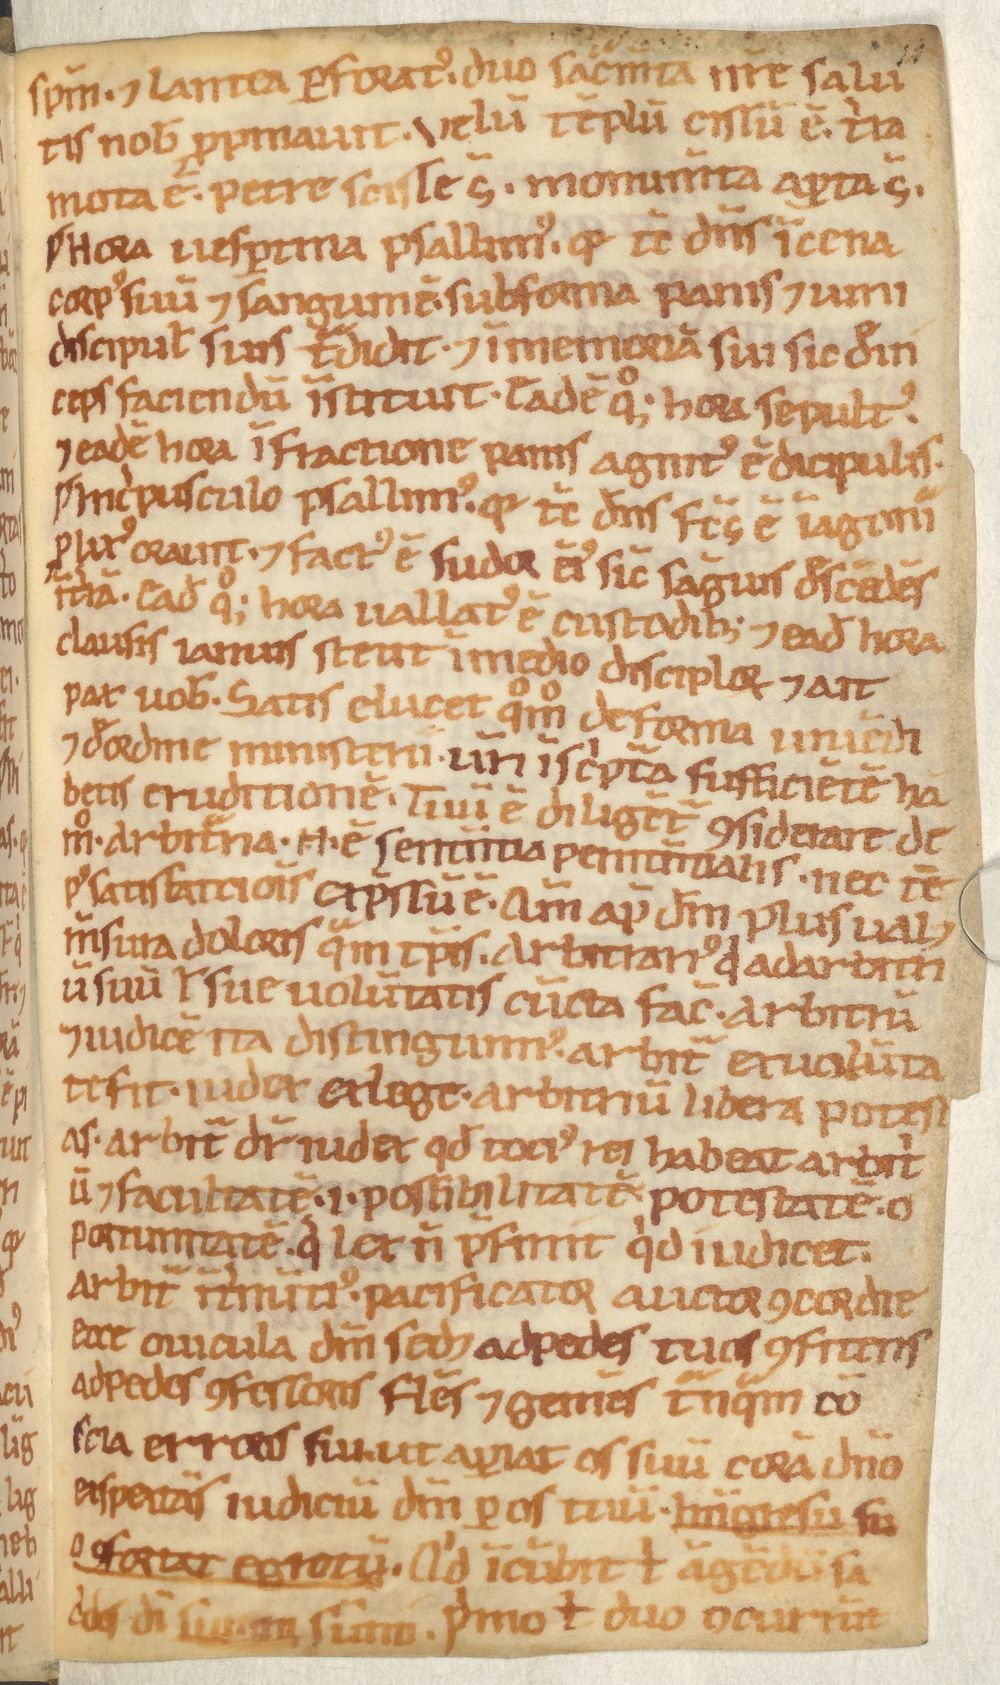 spm̄. ⁊ lancea ꝑforatꝰ. duo sac̄m̄ta nr̄e salu
tis nob̄ ꝓpinauit. Velū tēplū cissū ē. tr̄a
mota ē. petre scisse s̄. monum̄ta aꝑta s̄.
Hora uesꝑtina psallimꝰ. qr tc̄ dn̄s īcena
corpꝰ suū ⁊ sanguinē. sub forma panis ⁊ uini
discipul̄ suis t̄didit. ⁊ īmemoriā sui sic dein
ceps faciendū īstituit. Eadē qͦꝫ hora sepultꝰ.
⁊ eadē hora ī fractione panis agnitꝰ ē dicipulis.
In cͥpusculo psallimꝰ. qr tc̄ dn̄s fc̄s ē ī agonia
ꝓlixꝰ orauit. ⁊ factꝰ ē sudor eiꝰ sic̄ sāguis dēscēdēs
ī tr̄ā. Ead̄ qͦꝫ hora uallatꝰ ē custodibꝫ ⁊ ead̄ hora
clausis ianuis stetit ī medio disciplor̄ ⁊ ait
pax uob̄. Satis elucet qͦmͦ de forma uiuēdi
⁊ d̄ ordine ministerii. ur̄i īscͥpta sufficiētē ha
betis eruditionē. Tuū ē diligēt̄ ꝯsiderare de
mͦ. arbitͥria. H. ē sentēntia penitētialis. nec tc̄
pͥ satisfactiōis exp̄ssū ē. Qm̄ ap̄ dm̄ plus ualꝫ
m̄sura doloris qͣm tp̄is. Arbitrariꝰ qͥ ad arbitri
ū suū ł sue uolūtatis cūcta fac̄. arbitrū
⁊ iudicē ita distinguimꝰ. arbit̄ ex uolūta
te fit. iudex ex lege. arbitriū libera potest
as. arbit̄ dr̄ iudex qd̄ tociꝰ rei habeat arbitͥ
ū ⁊ facultatē. i. possibilitatē. potestatē. o
portunitatē. qͥ lꝫ n̄ p̄finit qͥd iudicet.
arbit̄ īt̄mitiꝰ. pacificator auctor ꝯcordie
ecce ouicula dm̄ sedꝫ ad pedes tuos ꝯfitens
ad pedes ꝯfessoris flēs ⁊ gemēs t̄nqͣm cō
scia erroris sui. ut aꝑiat os suū corā dn̄o
exspectās iudiciū dm̄ ꝑ os tuū. In īgressu su
o ꝯfortat egrotū. Qͥd īcūbit t̄ āgēdū sa
cdos di su̅m̅ī. Pͥmo t̄ duo ocurrūt